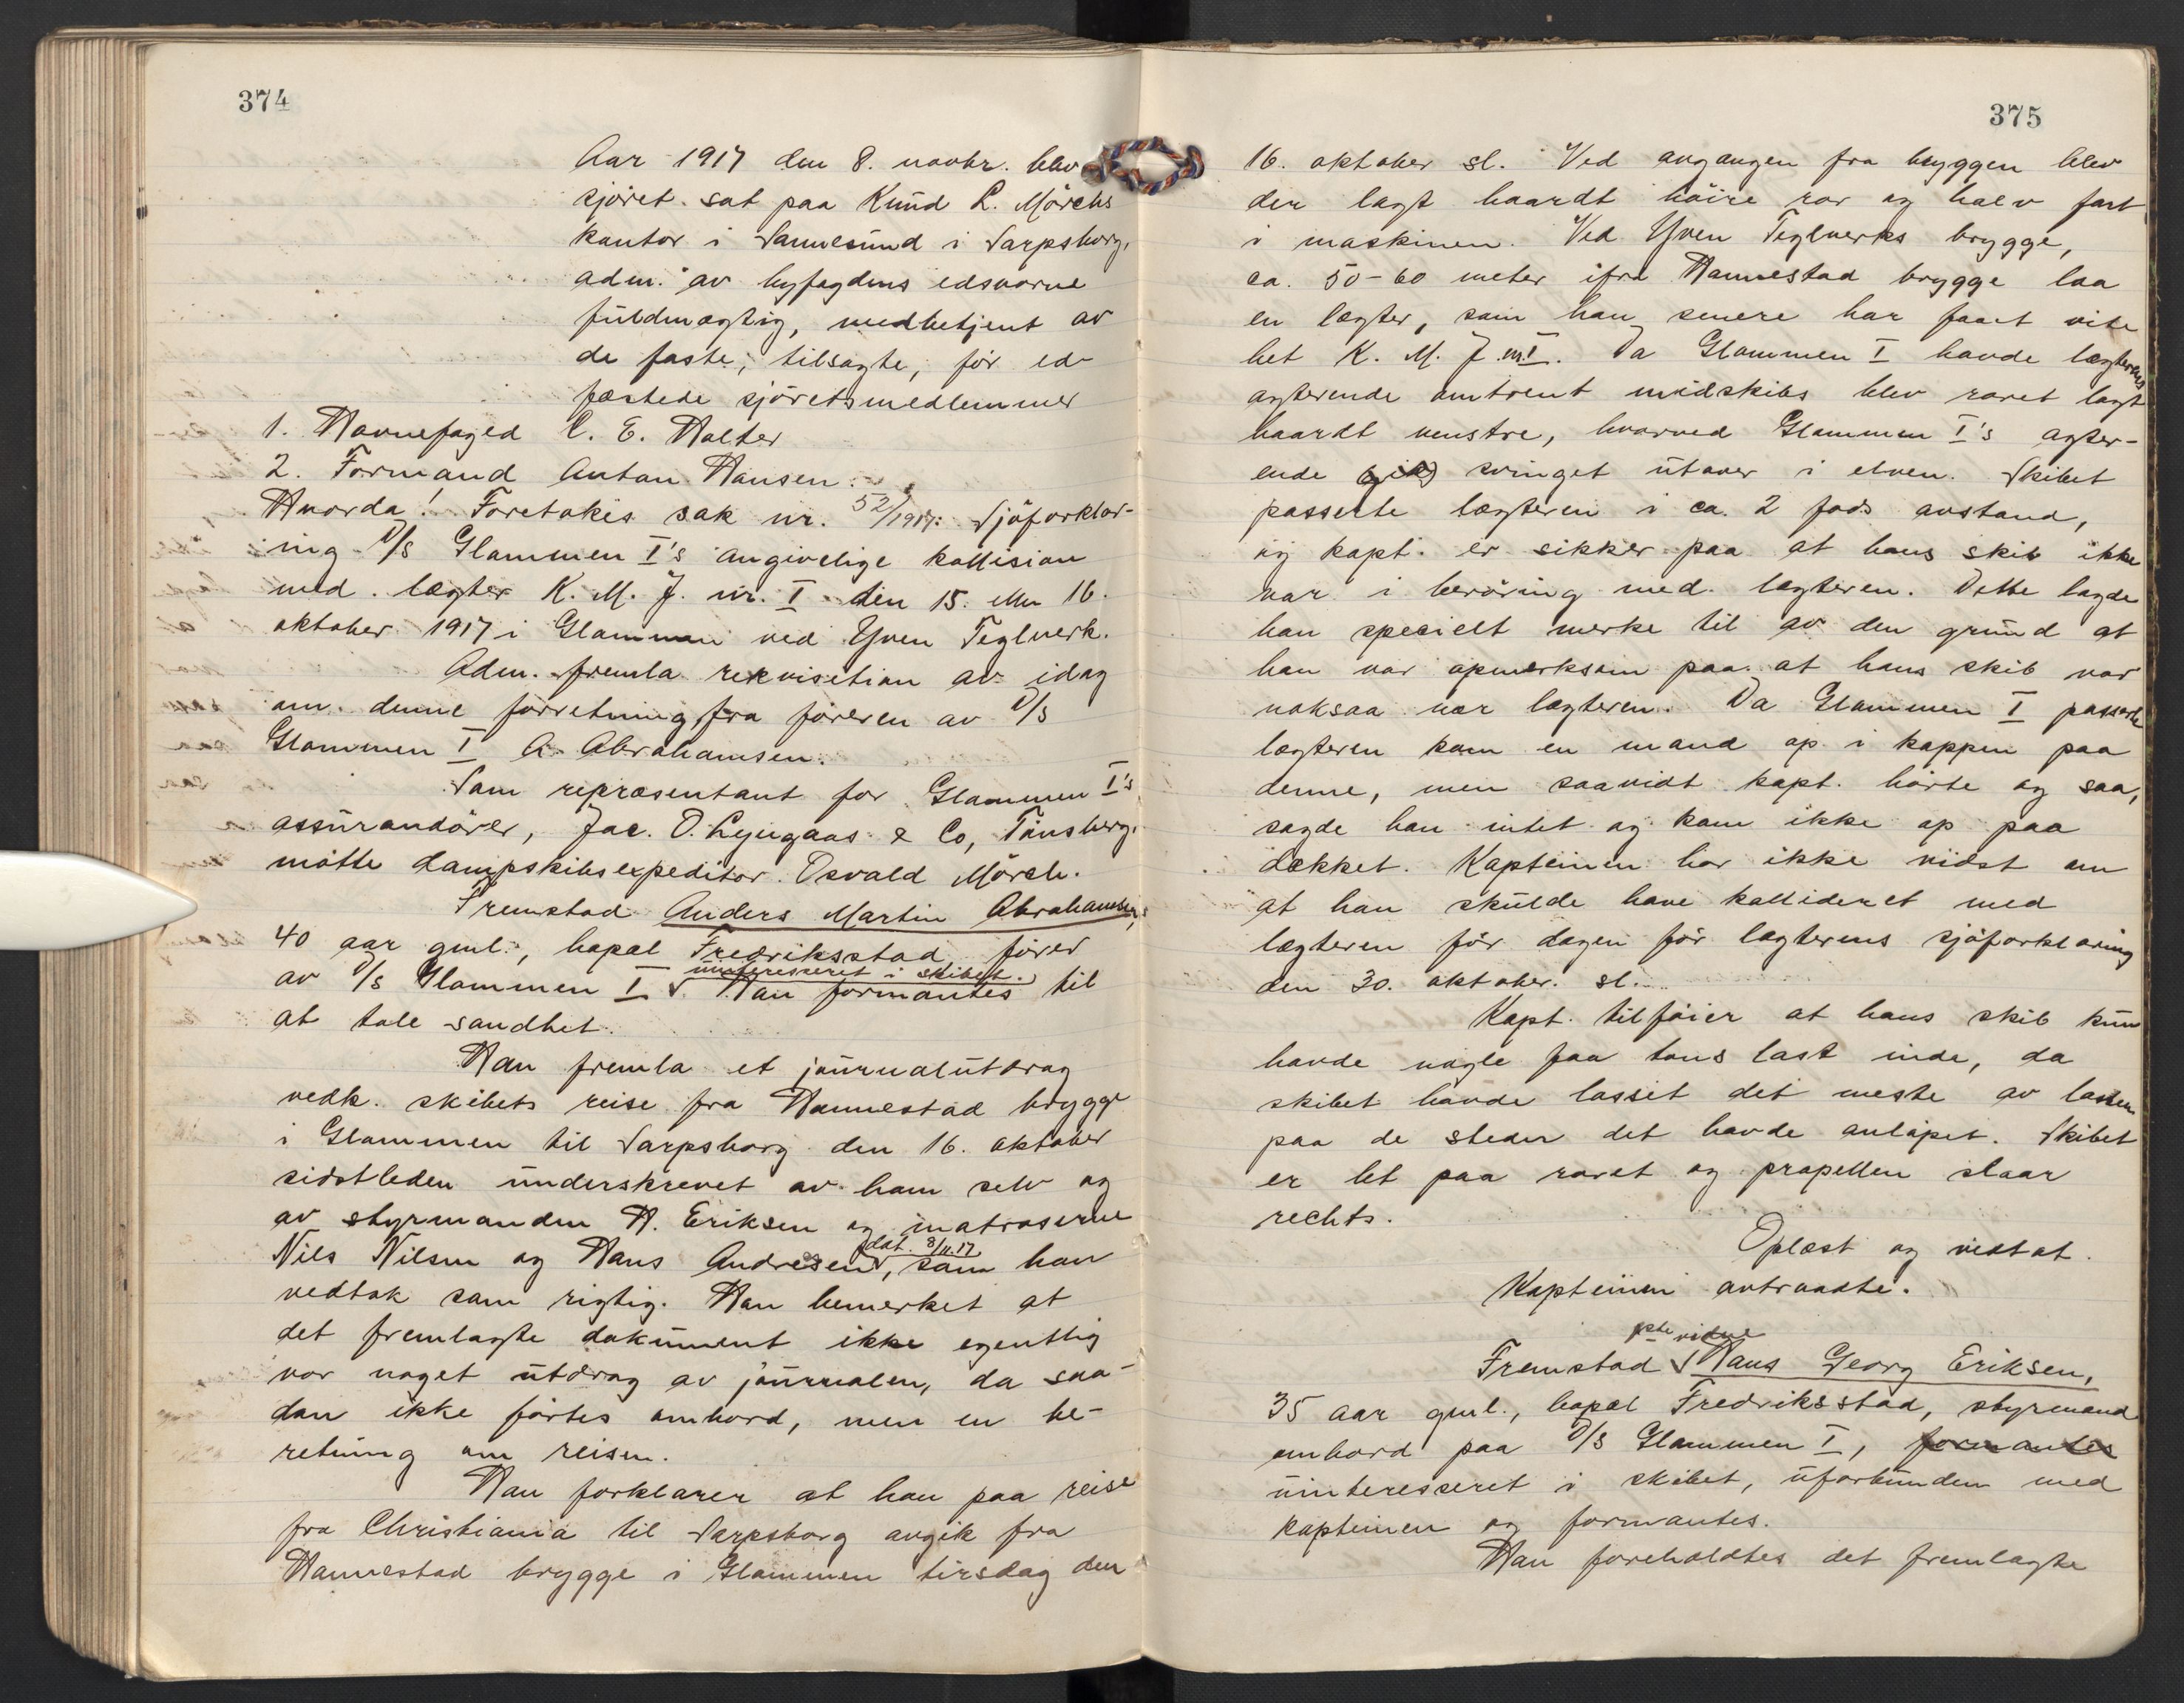 374
Aar 1917 den 8. novbr. blev
sjöret sat paa Knud L. Mörchs
kontor i Sannesund i Sarpsborg,
adm. av byfogdens edsvorne
fuldmægtig, medbetjent av
de faste, tilsagte, før ed-
fæstede sjöretsmedlemmer
1. Havnefoged C. E. Holter
2. Formand Anton Hansen.
Hvorda! Foretokes sak nr. 52/1917: Sjöforklar-
ing D/S Glommen I's angivelige kollision
med lægter K. M. J. nr. I den 15. eller 16.
oktober 1917 i Glommen ved Yven Teglverk.
Adm. fremla rekvisition av idag
om denne forretning fra föreren av D/S
Glommen I A. Abrahamsen.
Som repræsentant for Glommen I's
assurandörer, Jac. O. Lyngaas & Co, Tönsberg,
mötte dampskibsexpeditör Osvald Mörch.
Fremstod Anders Martin Abrahamsen,
40 aar gml., bopæl Fredriksstad, förer
uinteresseret i skibet.
av D/S Glommen I √. Han formantes til
at tale sandhet.
Han fremla et journalutdrag
vedk. skibets reise fra Hannestad brygge
i Glommen til Sarpsborg den 16. oktober
sidstleden underskrevet av ham selv og
av styrmanden H. Eriksen og matroserne
dat. 8/11.17
Nils Nilsen og Hans Andresen √, som han
vedtok som rigtig. Han bemerket at
det fremlagte dokument ikke egentlig
var noget utdrag av journalen, da saa-
dan ikke förtes ombord, men en be-
retning om reisen.
Han forklarer at han paa reise
fra Christiania til Sarpsborg avgik fra
Hannestad brygge i Glommen tirsdag den
375
16. oktober sl. Ved avgangen fra bryggen blev
der lagt haardt höire ror og halv fart
i maskinen. Ved Yven Teglverks brygge,
ca. 50-60 meter ifra Hannestad brygge laa
en lægter, som han senere har faaet vite
het K. M. J. nr. I. Da Glommen I havde lægterens
agterende omtrent midskibs blev roret lagt
haardt venstre, hvorved Glommen I's agter-
ende (gik) svinget utover i elven. Skibet
passerte lægteren i ca. 2 fods avstand,
og kapt. er sikker paa at hans skib ikke
var i beröring med lægteren. Dette lagde
han specielt merke til av den grund at
han var opmerksom paa at hans skib var
noksaa nær lægteren. Da Glommen I passerte
lægteren kom en mand op i kappen paa
denne, men saavidt kapt. hörte og saa,
sagde han intet og kom ikke op paa
dækket. Kapteinen har ikke vidst om
at han skulde have kollideret med
lægteren för dagen för lægterens sjöforklaring
den 30. oktober sl.
Kapt. tilföier at hans skib kun
havde nogle faa tons last inde, da
skibet havde losset det meste av lasten
paa de steder det havde anlöpet. Skibet
er let paa roret og propellen slaar
rechts.
Oplæst og vedtat.
Kapteinen avtraadte.
1ste vidne
Fremstod √ Hans Georg Eriksen,
35 aar gml., bopæl Fredriksstad, styrmand
ombord paa D/S Glommen I, formantes
uinteresseret i skibet, uforbunden med
kapteinen og formantes.
Han foreholdtes det fremlagte